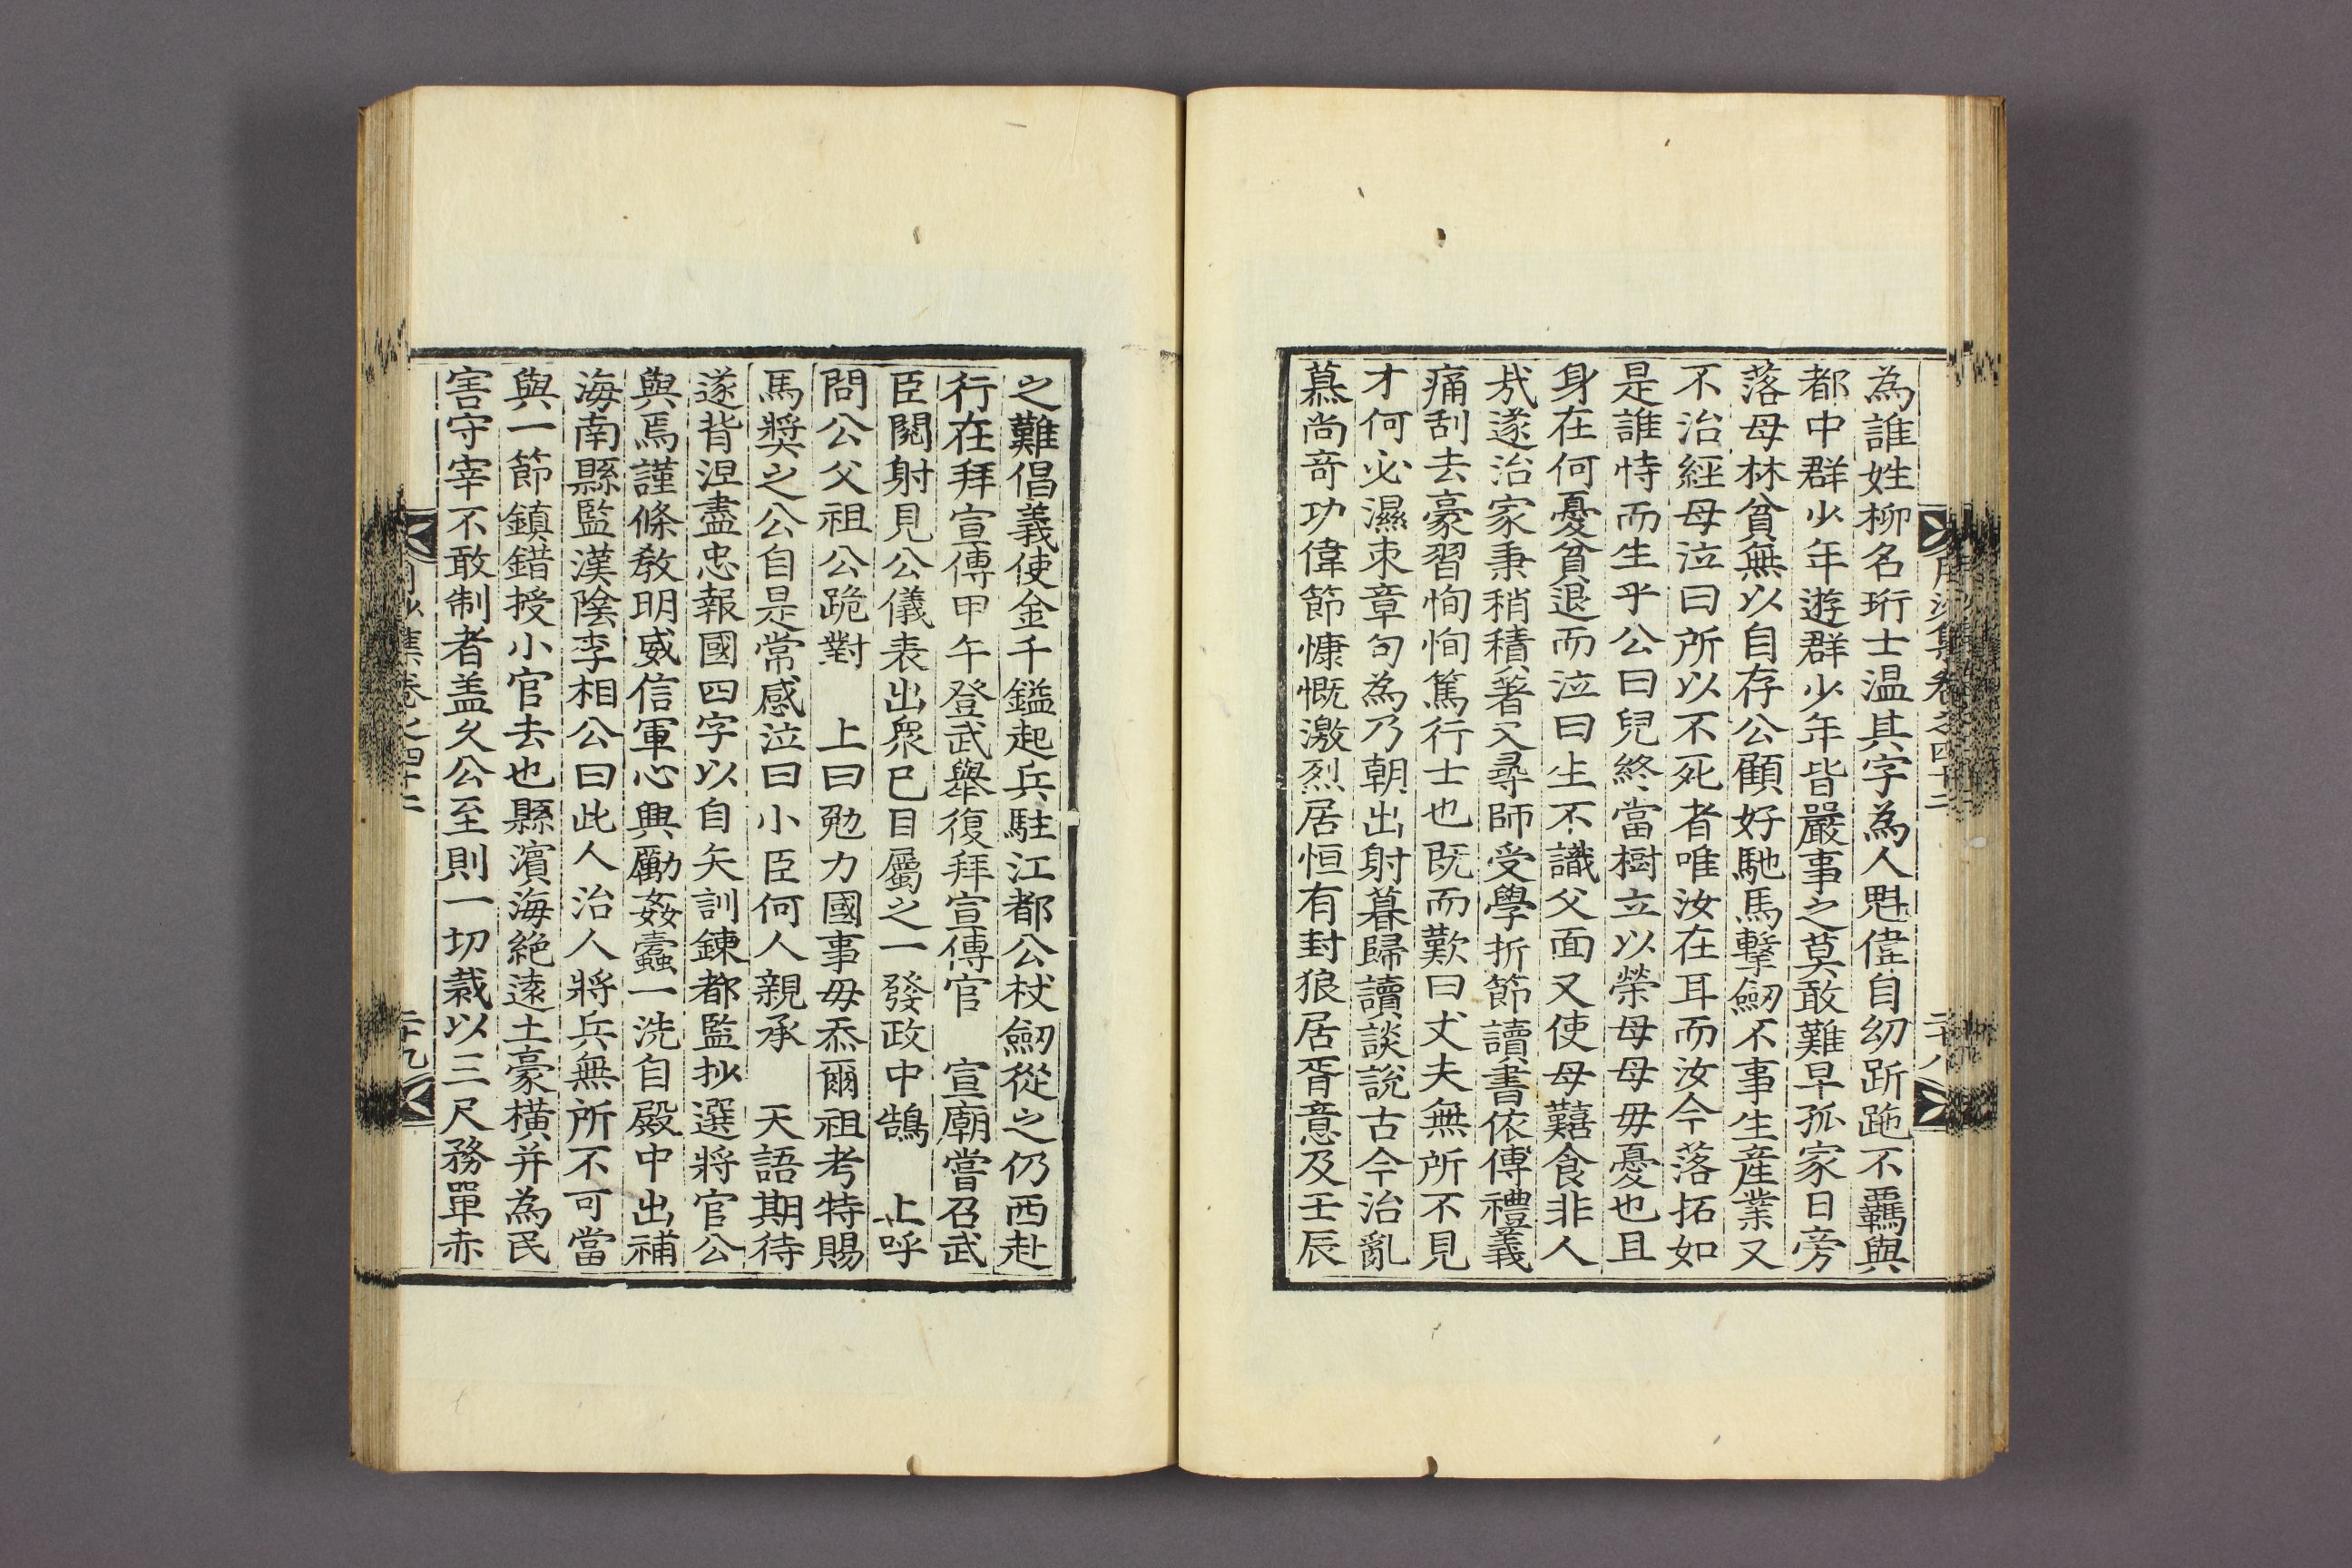 為誰姓柳名珩士溫其字為人魁偉自幼跅跑不羈與
都中群少年遊群少年皆嚴事之莫敢難早孤家日旁
落母林貧無以自存公顧好馳馬擊劒不事生產業又
不治經母泣曰所以不死者唯汝在耳而汝今落拓如
是誰恃而生乎公曰兒終當樹立以榮母母毋憂也且
身在何憂貧退而泣曰生不識父面又使母囏食非人
㢤遂治家秉稍積著又尋師受學折節讀書依傅禮義
痛刮去豪習恂恂篤行士也旣而歎曰丈夫無所不見
才何必濕束章句為乃朝出射暮歸讀談說古今治亂
慕尚奇功偉節慷慨激烈居恒有封狼居胥意及壬辰
月沙集卷之四十二
二十八
之難倡義使金千鎰起兵駐江都公杖劒從之仍西赴
行在拜宣傳甲午登武擧復拜宣傳官 宣廟嘗召武
臣閱射見公儀表出衆已目屬之一發政中鵠 上呼
問公父祖公跪對 上曰勉力國事毋忝爾祖考特賜
馬奬之公自是常感泣曰小臣何人親承 天語期待
遂背涅盡忠報國四字以自矢訓鍊都監抄選將官公
與焉謹條敎明威信軍心興勵姦蠹一洗自殿中出補
海南縣監漢陰李相公曰此人治人將兵無所不可當
與一節鎮錯授小官去也縣濱海絕遠土豪橫并為民
害守宰不敢制者盖久公至則一切裁以三尺務單赤
月沙集卷之四十二
二十九